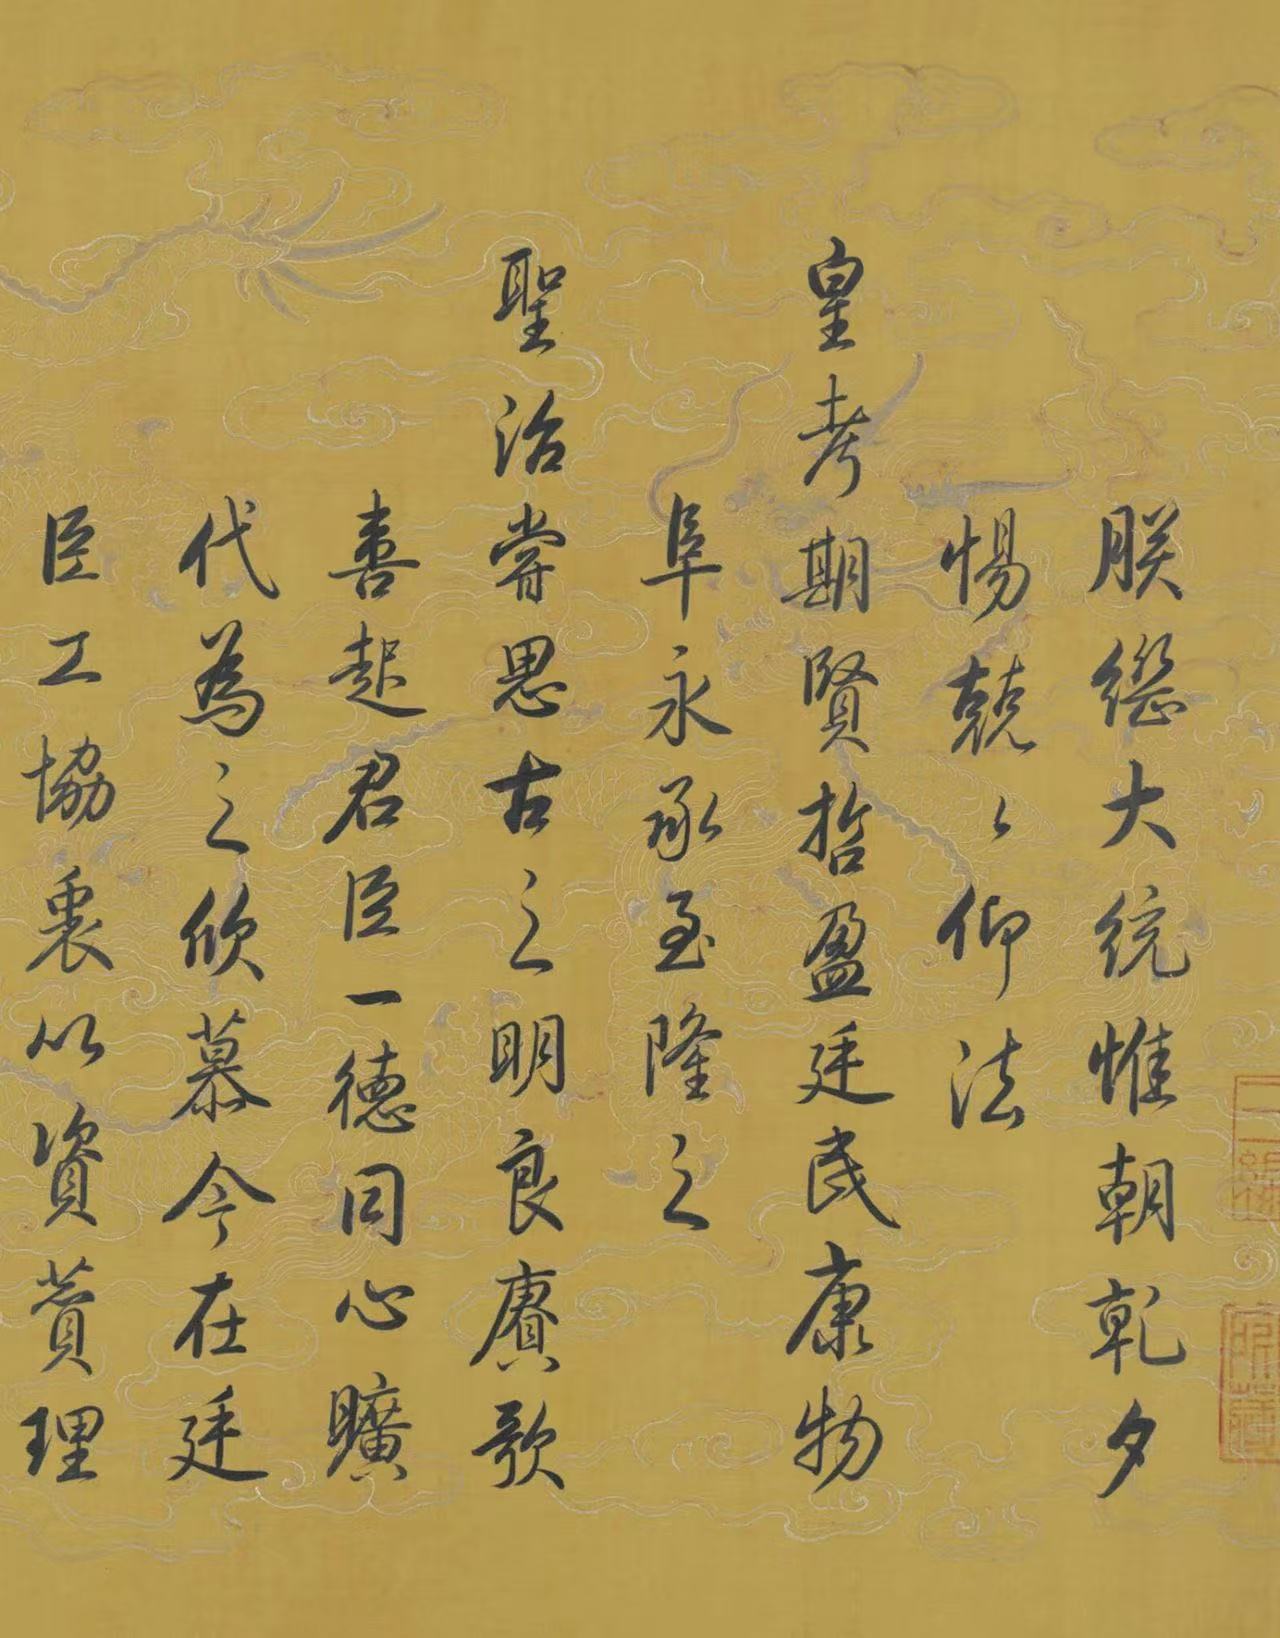 朕缵大统惟朝乾夕
惕兢々仰法
皇考期賢哲盈廷民康物
阜永承至隆之
聖治嘗思古之明良賡歌
喜起君臣一德同心曠
代為之欣慕今在廷
臣工協衷以資賛理